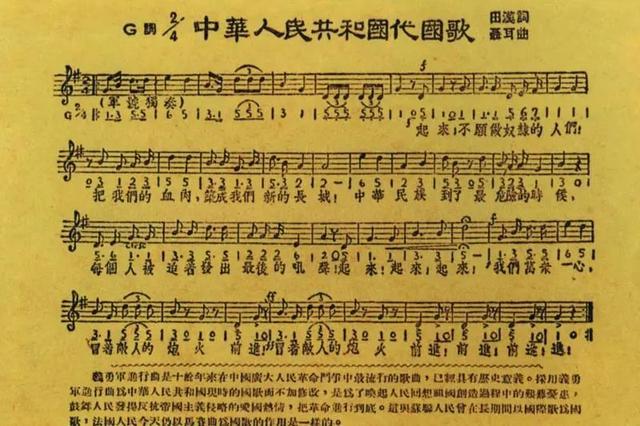 G調 2/4 中華人民共和國代國歌 田漢詞
聶耳曲
(軍號獨奏)
起來!不願做奴隸的人們!
把我們的血肉,築成我們新的長城!中華民族到了最危險的時候,
每個人被迫著發出最後的吼聲!起來!起來!起來!我們萬衆一心,
冒着敵人的炮火前進!冒着敵人的炮火前進!前進!前進!進!
義勇軍進行曲是十餘年來在中國廣大人民革命鬥爭中最流行的歌曲,已經具有歷史意義。採用義勇
軍進行曲爲中華人民共和國現時的國歌而不加修改,是爲了喚起人民回想祖國創造過程中的艱難憂患,
鼓舞人民發揚反抗帝國主義侵略的愛國熱情,把革命進行到底。這與蘇聯人民曾在長期間以國際歌爲國
歌,法國人民今天仍以馬賽曲爲國歌的作用是一樣的。